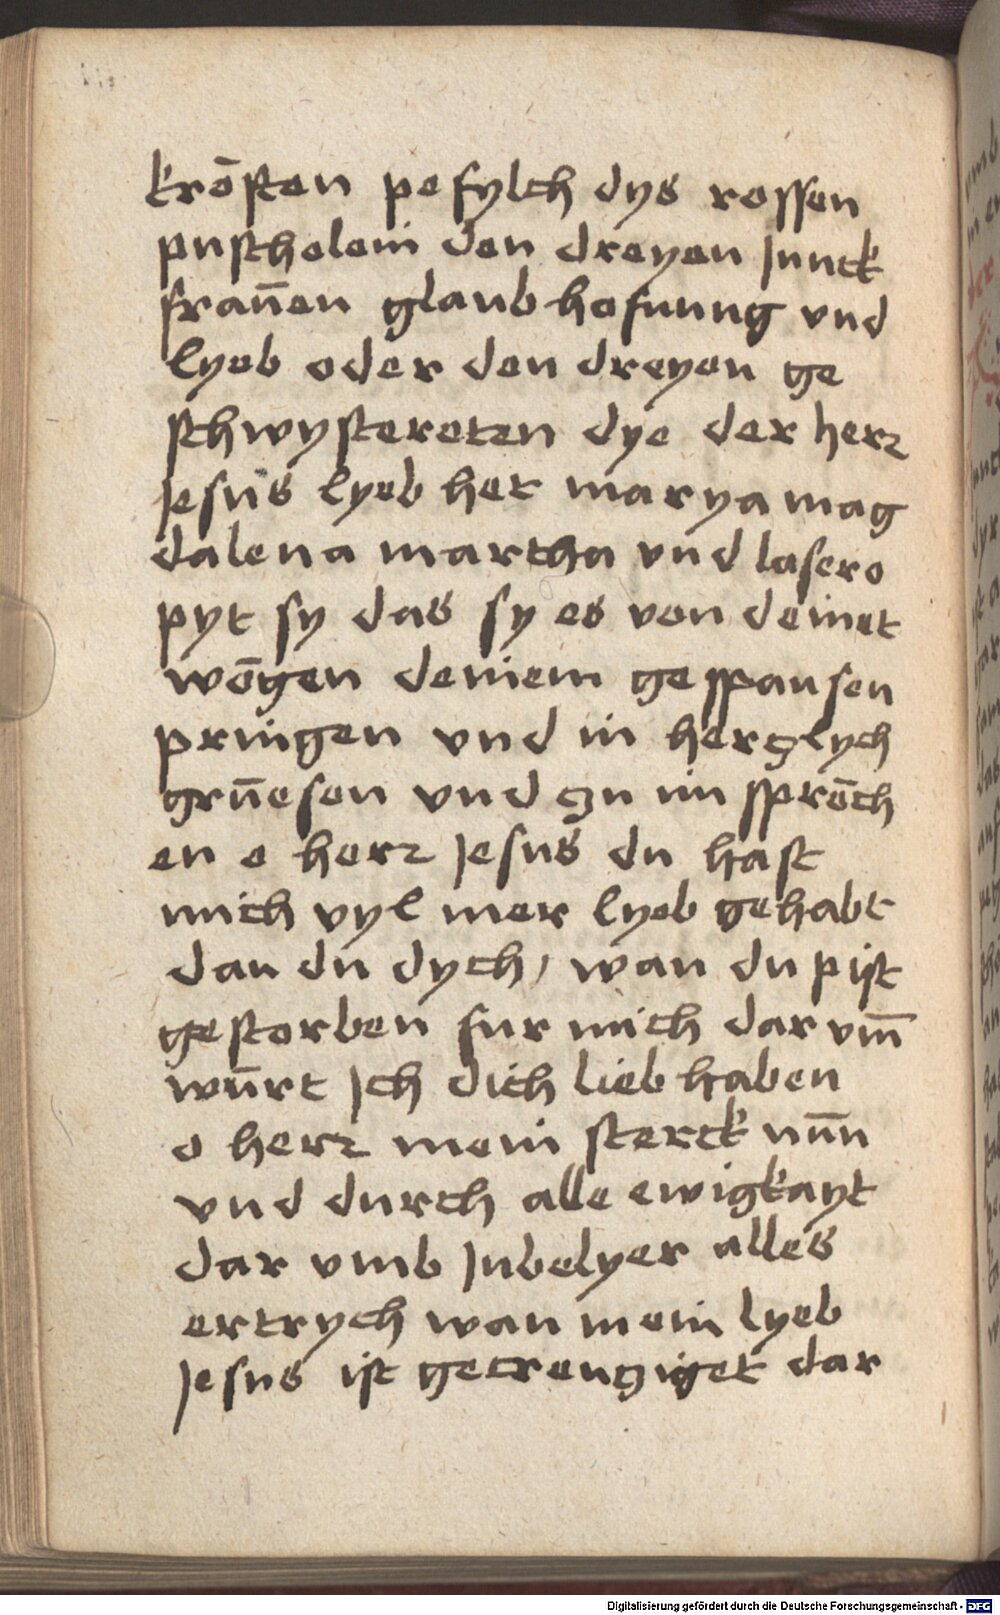 krōsten pefylch dys rossen
puscheleni den dreyen Junck
fraūen glaub hofnung vnd
lyeb oder den dreyen ge
schwystereten dye der herr
Jesus lyeb het marya mag
dalena martha vnd lasero
pyt sy das sy es von deinet
wōgen deniem gesspansen
pringen vnd in herczlych
grūesen vnd czu im sprōch
en o herr Jesus du hast
mich vyl mer lyeb gehabt
dan du dych, wan du pist
gestorben fur mich dar vm̄
wūrt Ich dich lieb haben
o herr mein sterck nūn
vnd durch alle ewigkayt
dar vmb Jubelyer alles
ertrych wan mein lyeb
Jesus ist gecreucziget dar
Digitalisierung gefördert durch die Deutsche Forschungsgemeinschaft - DFG